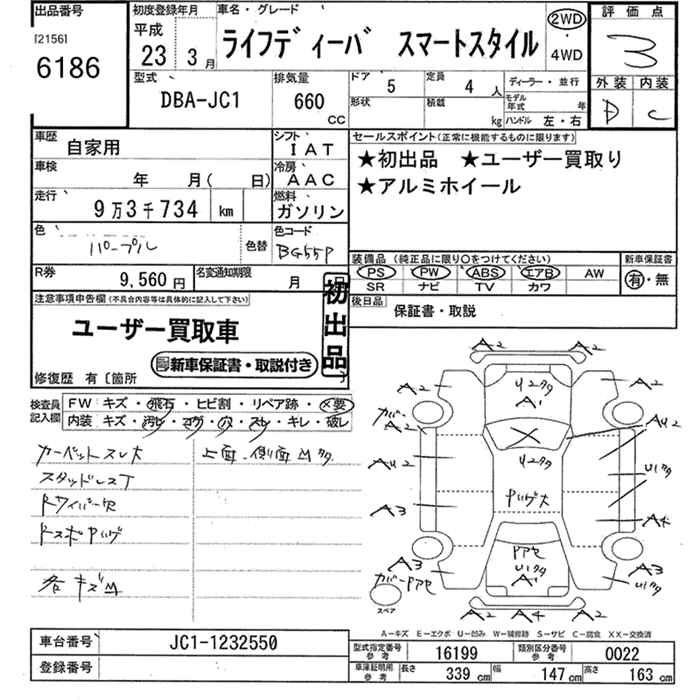 出品番号
[2156]
6186
初度登録年月
平成
23 3月
車名・グレード
ライフディーバ スマートスタイル
2WD
・
4WD
評価点
3
外装 内装
D C
型式
DBA-JC1
排気量
660
CC
ドア 5
定員 4 人
形状
積載 kg
ディーラー・並行
モデル年式 年
ハンドル 左・右
車歴
自家用
シフト
IAT
車検
年 月( 日)
冷房
AAC
走行
9万3千734 km
燃料
ガソリン
色
パープル
色替
色コード
BG55P
R券
9,560円
名変通知期限
月 日
セールスポイント(正常に機能するものに限ります)
★初出品 ★ユーザー買取り
★アルミホイール
装備品(純正品に限り○をつけてください)
PS PW ABS エアB AW
SR ナビ TV カワ
新車保証書
有・無
後日品
保証書・取説
注意事項申告欄(不具合内容等は具体的に記入して下さい)
ユーザー買取車
新車保証書・取説付き
初出品
修復歴 有〔箇所 〕
検査員記入欄
FW キズ・飛石・ヒビ割・リペア跡・×要
内装 キズ・汚レ・コゲ・穴・スレ・キレ・破レ
カーペットスレ大
スタッドレスT
Rワイパー欠
Rスポ Pハゲ
各キズM
上面・側面Mタ
A2 A2
A2 A2
U2タ
A1
カバー
A2
A2
A3
A3
カバーPアセ
U2タ
Pハゲ大
Pアセ
U1タ
A1
AU2
U1タ
A3
U1タ
A2 A4 A2
スペア
A－キズ E－エクボ U－凹み W－補修跡 S－サビ C－腐食 XX－交換済
車台番号
JC1-1232550
登録番号
型式指定番号
参考
16199
類別区分番号
参考
0022
車庫証明用
参考
長さ 339 cm
幅 147 cm
高さ 163 cm